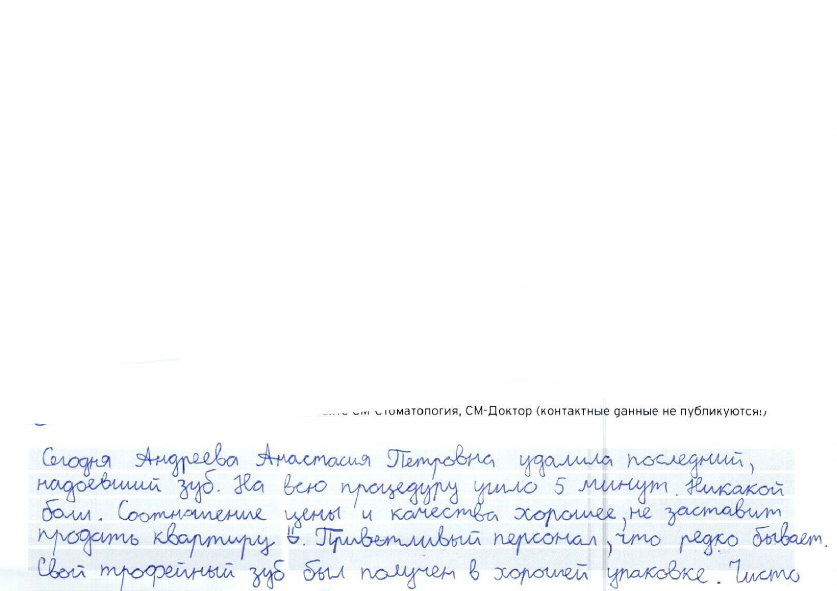 СМ Стоматология, СМ-Доктор (контактные данные не публикуются!)
Сегодня Андреева Анастасия Петровна удалила последний,
надоевший зуб. На всю процедуру ушло 5 минут. Никакой
боли. Соотношение цены и качества хорошее, не заставит
продать квартиру. Приветливый персонал, что редко бывает.
Свой трофейный зуб был получен в хорошей упаковке. Чисто